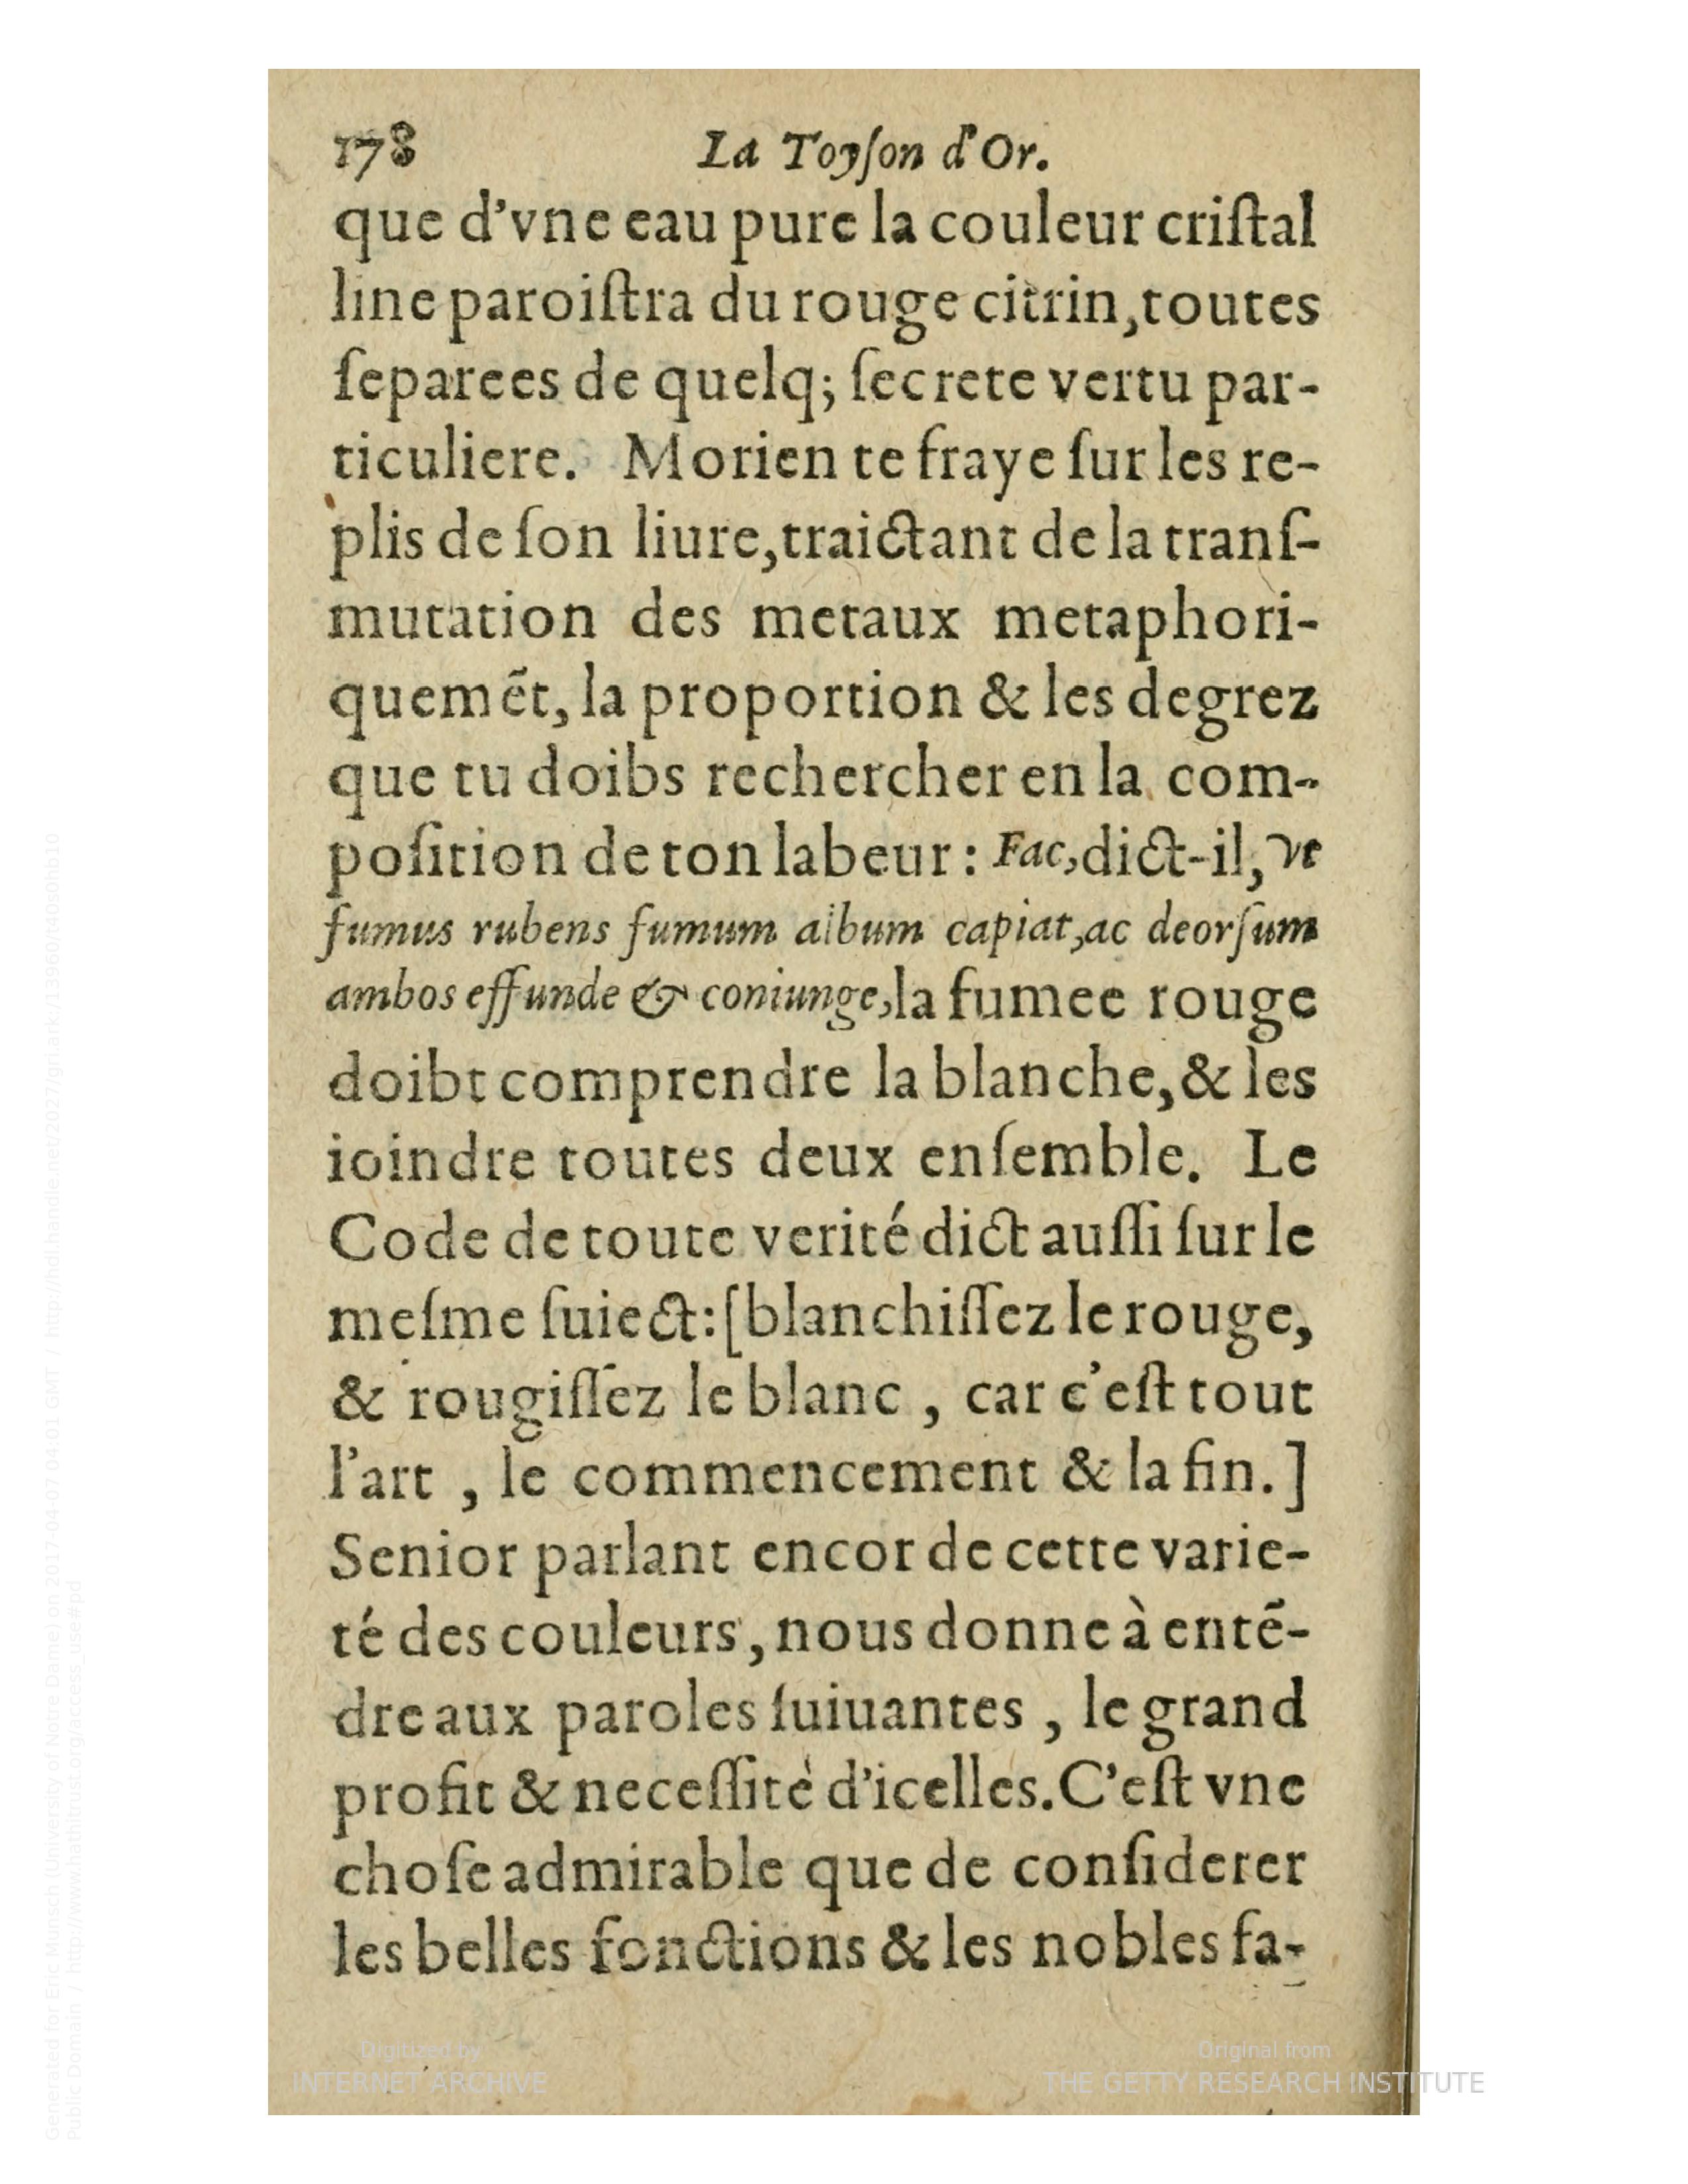 178 La Toyſon d'Or.
que d'vne eau pure la couleur criſtal
line paroiſtra du rouge citrin, toutes
ſeparees de quelq; ſecrete vertu par-
ticuliere. Morien te fraye ſur les re-
plis de ſon liure, traictant de la tranſ-
mutation des metaux metaphori-
quemēt, la proportion & les degrez
que tu doibs rechercher en la com-
poſition de ton labeur : Fac, dict-il, vt
fumus rubens fumum album capiat, ac deorſum
ambos effunde & coniunge, la fumee rouge
doibt comprendre la blanche, & les
ioindre toutes deux enſemble. Le
Code de toute verité dict auſſi ſur le
meſme ſuiect: [blanchiſſez le rouge,
& rougiſſez le blanc , car c'eſt tout
l'art , le commencement & la fin. ]
Senior parlant encor de cette varie-
té des couleurs, nous donne à entē-
dre aux paroles ſuiuantes , le grand
profit & neceſſité d'icelles. C'eſt vne
choſe admirable que de conſiderer
les belles fonctions & les nobles fa-
Digitized by
INTERNET ARCHIVE
Original from
THE GETTY RESEARCH INSTITUTE
Generated for Eric Munsch (University of Notre Dame) on 2017-04-07 04:01 GMT / http://hdl.handle.net/2027/gri.ark:/13960/t40s0hb10
Public Domain / http://www.hathitrust.org/access_use#pd